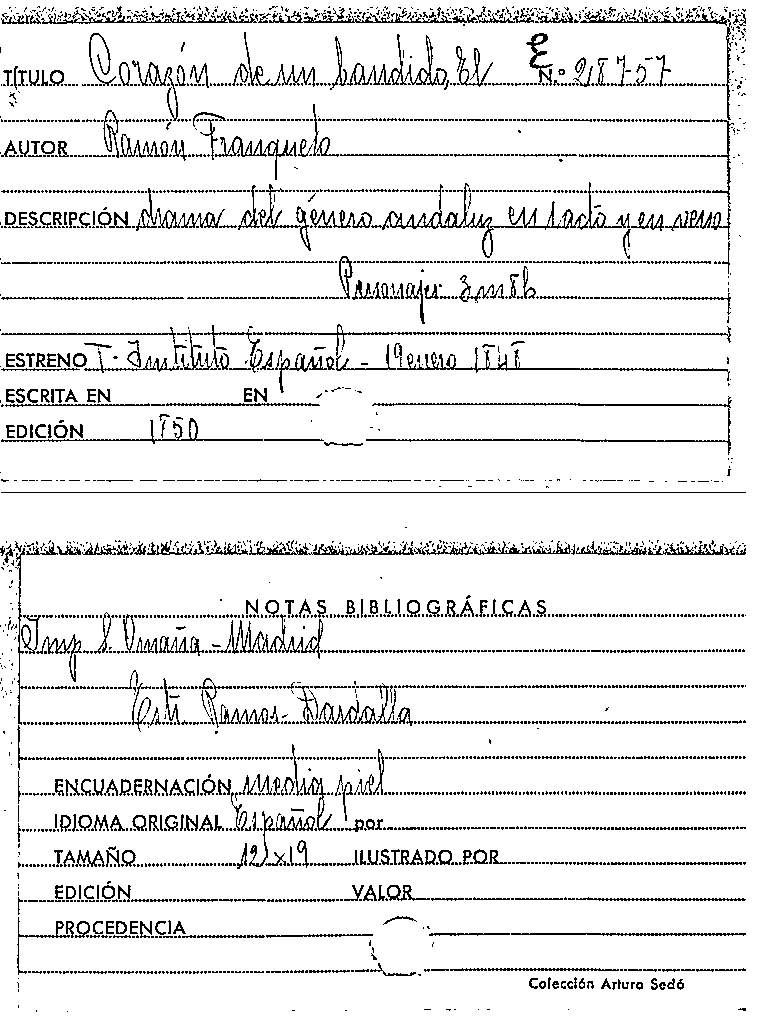 TÍTULO Corazón de un bandido, El E N.º 218757
AUTOR Ramón Franquelo
DESCRIPCIÓN drama del género andaluz en 1 acto y en verso
Personajes 3 m 8 h
ESTRENO T. Instituto Español - 19 enero 1848
ESCRITA EN EN
EDICIÓN 1850
NOTAS BIBLIOGRÁFICAS
Imp S. Omaña - Madrid
Estr. Ramos - Dardalla
ENCUADERNACIÓN media piel
IDIOMA ORIGINAL Español por
TAMAÑO 12 x 19 ILUSTRADO POR
EDICIÓN VALOR
PROCEDENCIA
Colección Arturo Sedó